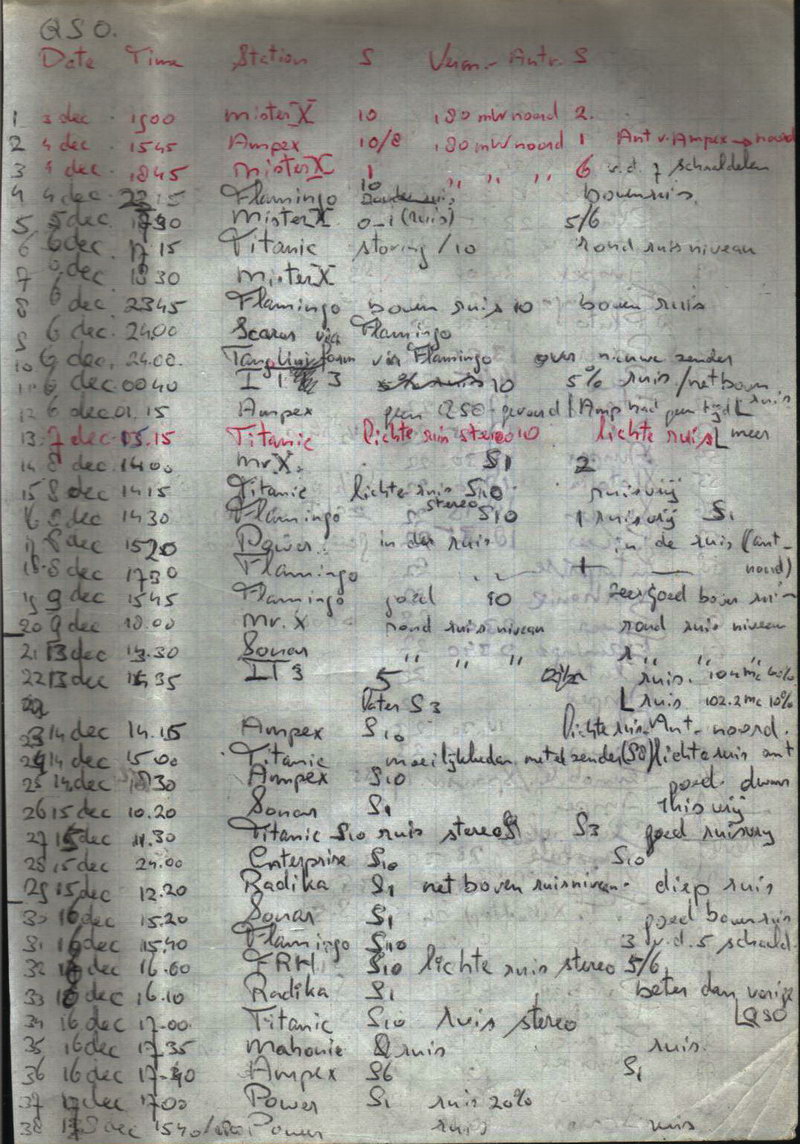 QSO.
Date Time Station S Verm. Antr. S
1 3 dec. 1500 Mister X 10 180 mW noord 2.
2 4 dec. 1545 Ampex 10/8 180 mW noord 1 Ant v. Ampex → noord
3 4 dec. 1845 Mister X 1 " " " 6 v.d. 7 schaaldelen
4 4 dec. 22.15 Flamingo 10 bovenruis.
5 5 dec. 1730 Mister X 0-1 (ruis) 5/6
6 6 dec. 17.15 Titanic storing / 10 rond ruis niveau
7 6 dec. 1830 Mister X
8 6 dec. 2345 Flamingo boven ruis 10 boven ruis
9 6 dec. 24.00 Scarus via Flamingo
10 6 dec. 24.00. via Flamingo over nieuwe zender
11 6 dec. 0040 I T 3 10 5% ruis / net boven
12 6 dec. 01.15 Ampex geen QSO gevoerd / Amp had geen tijd L ruis
13. 7 dec. 15.15 Titanic lichte ruis stereo 10 lichte ruis L meer
14 8 dec. 14.00 Mr. X. S1 2
15 8 dec 14.15 Titanic lichte ruis S10 ruisvrij
16 8 dec 14.30 Flamingo stereo S10 1 ruisvrij S1
17 8 dec. 1520 Power. in de ruis in de ruis (ant noord)
18. 8 dec. 1730 Flamingo
19 9 dec 1545 Flamingo goed 10 zeer goed boven rui-
20 9 dec 18.00 Mr. X rond ruis niveau rond ruis niveau
21 13 dec 14.30 Sonar " " " " "
22 13 dec 1535 IT3 5 ruis. 104 mc 40%
later S3 L ruis 102.2 mc 10%
23 14 dec 14.15 Ampex S10 lichte ruis. Ant. noord.
24 14 dec 15.00 Titanic moeilijkheden met de zender (S8) lichte ruis ant
25 14 dec 18.30 Ampex S10 goed. dwars
26 15 dec 10.20 Sonar S1 ruisvrij
27 15 dec 11.30 Titanic S10 ruis stereo S1 S3 goed ruisvrij
28 15 dec 24.00 Enterprise S10 S10
29 15 dec 12.20 Radika S1 net boven ruisniveau. diep ruis
30 16 dec 15.20 Sonar S1 goed boven ruis
31 16 dec 15.40 Flamingo S10 3 v.d. 5 schaald.
32 16 dec 16.00 FRH S10 lichte ruis stereo 5/6
33 16 dec 16.10 Radika S1 beter dan vorige L QSO
34 16 dec 17.00. Titanic S10 ruis stereo
35 16 dec 17.35 Mahonie ruis ruis.
36 16 dec 17.40 Ampex S6 S1
37 17 dec 17.00 Power S1 ruis 20%
38 dec 1540 Power ruis ruis